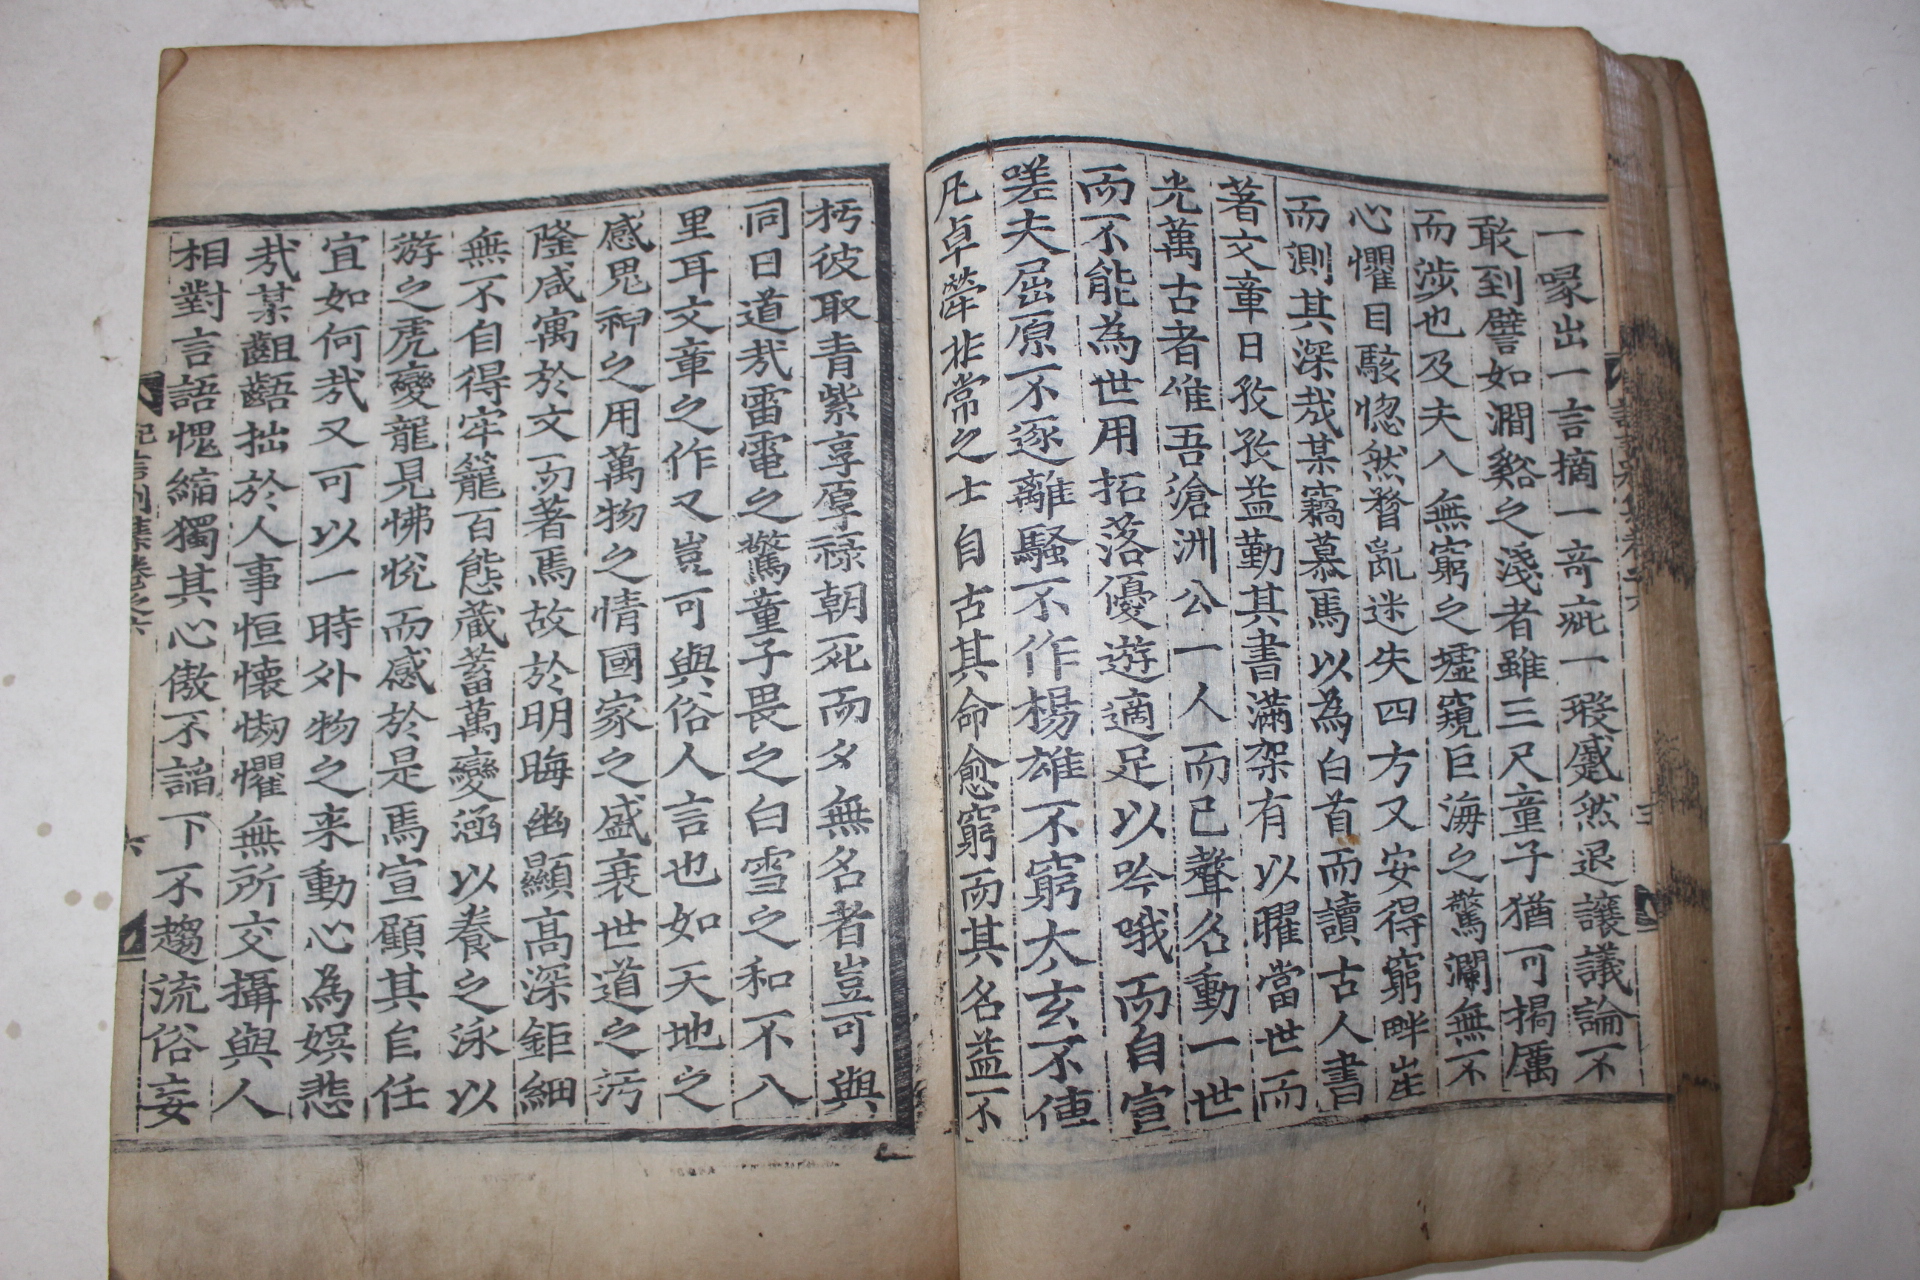 一喙出一言摘一奇疵一瑕蹙然退讓議論不
敢到譬如澗谿之淺者雖三尺童子猶可揭厲
而涉也及夫入無窮之墟窺巨海之驚瀾無不
心懼目駭惚然瞀亂迷失四方又安得窮畔崖
而測其深哉某竊慕焉以為白首而讀古人書
著文章日孜孜益勤其書滿架有以曜當世而
光萬古者唯吾滄洲公一人而已聲名動一世
而不能為世用拓落優遊適足以吟哦而自宣
嗟夫屈原不逐離騷不作楊雄不窮太玄不傳
凡卓犖非常之士自古其命愈窮而其名益不
朽彼取青紫享厚祿朝死而夕無名者豈可與
同日道哉雷電之驚童子畏之白雪之和不入
里耳文章之作又豈可與俗人言也如天地之
感鬼神之用萬物之情國家之盛衰世道之汚
隆咸寓於文而著焉故於明晦幽顯高深鉅細
無不自得牢籠百態藏蓄萬變涵以養之泳以
游之虎變龍見怫悅而感於是焉宣顧其自任
宜如何哉又可以一時外物之来動心為娛悲
哉某齟齬拙於人事恒懷惻懼無所交攝與人
相對言語愧縮獨其心傲不諂下不趨流俗妄
記言別集卷之六
六